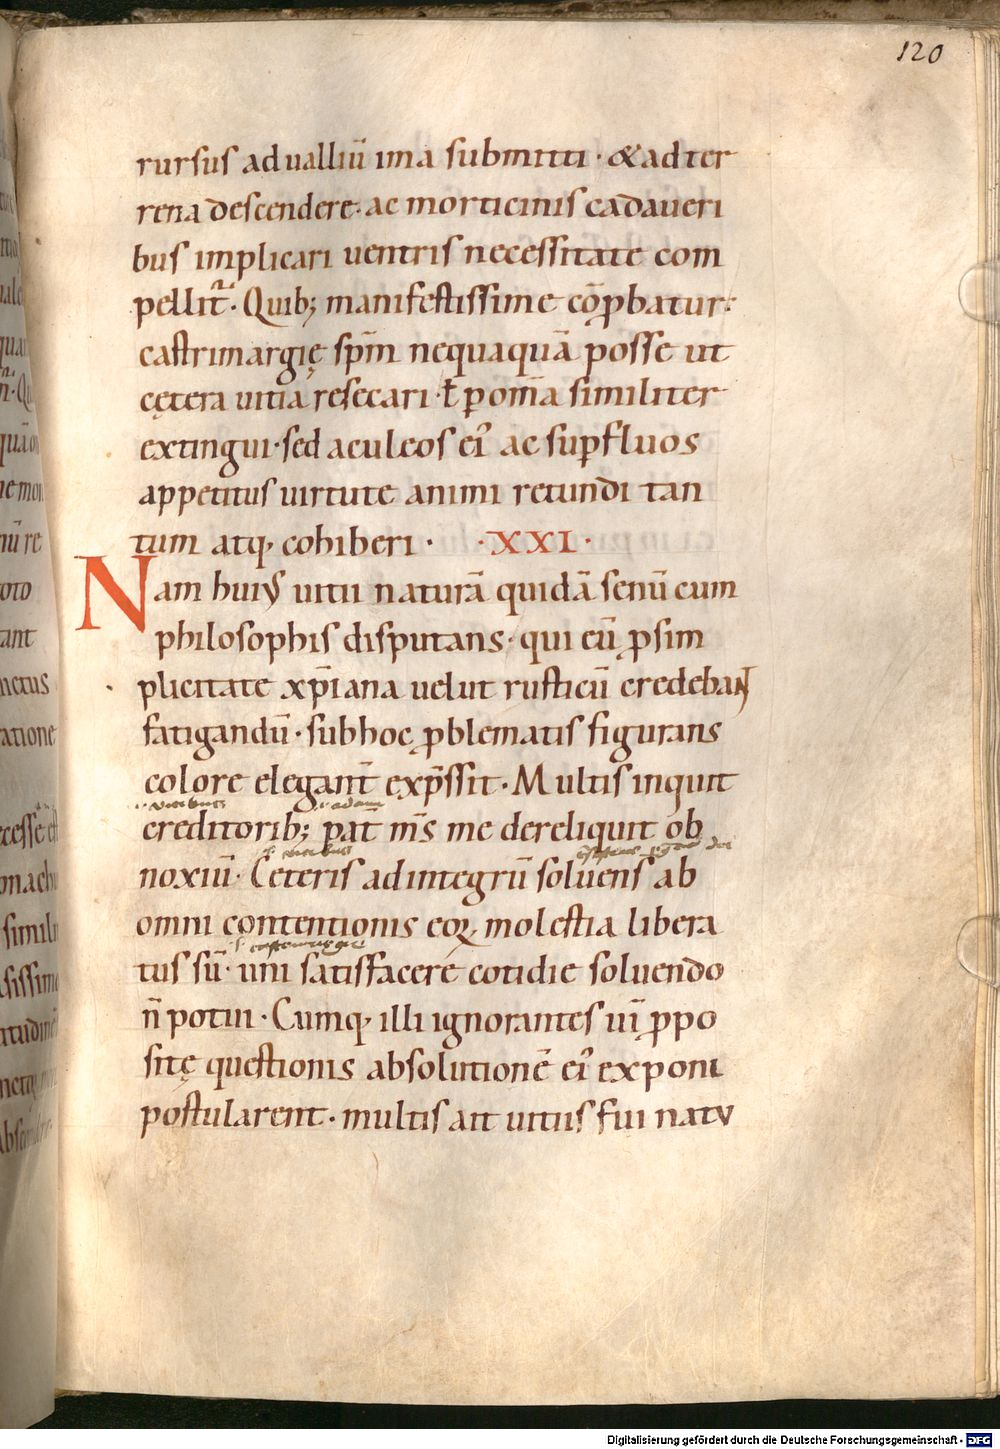 120
rursus ad ualliū ima submitti · & ad ter
rena descendere · ac morticinis cadaueri
bus implicari uentris necessitate com
pellit᷑ · Quib; manifestissime cōꝓbatur :
castrimargię sp̄m nequaquā posse ut
cętera uitia resecari · ł ꝑ om̄a similiter
extingui · sed aculeos ei᷑ ac suꝑfluos
appetitus uirtute animi retundi tan
tum atq, cohiberi · · XXI ·
Nam huiꝰ uitii naturā quidā senū cum
philosophis disputans · qui eū ꝓ sim
plicitate xp̄iana uelut rusticū credebant
fatigandū · sub hoc ꝓblematis figurans
colore elegant̄ exp̄ssit · Multis inquit
creditorib; pat̄ m̄s me dereliquit ob
noxiū · Ceteris ad integrū soluens ab
omni contentionis eoꝝ molestia libera
tus sū · uni satisfacere cotidie soluendo
n̄ potui · Cumq, illi ignorantes uī ꝓpo
sitę questionis absolutionē ei᷑ exponi
postularent · multis ait uitiis fui natu
Digitalisierung gefördert durch die Deutsche Forschungsgemeinschaft - DFG